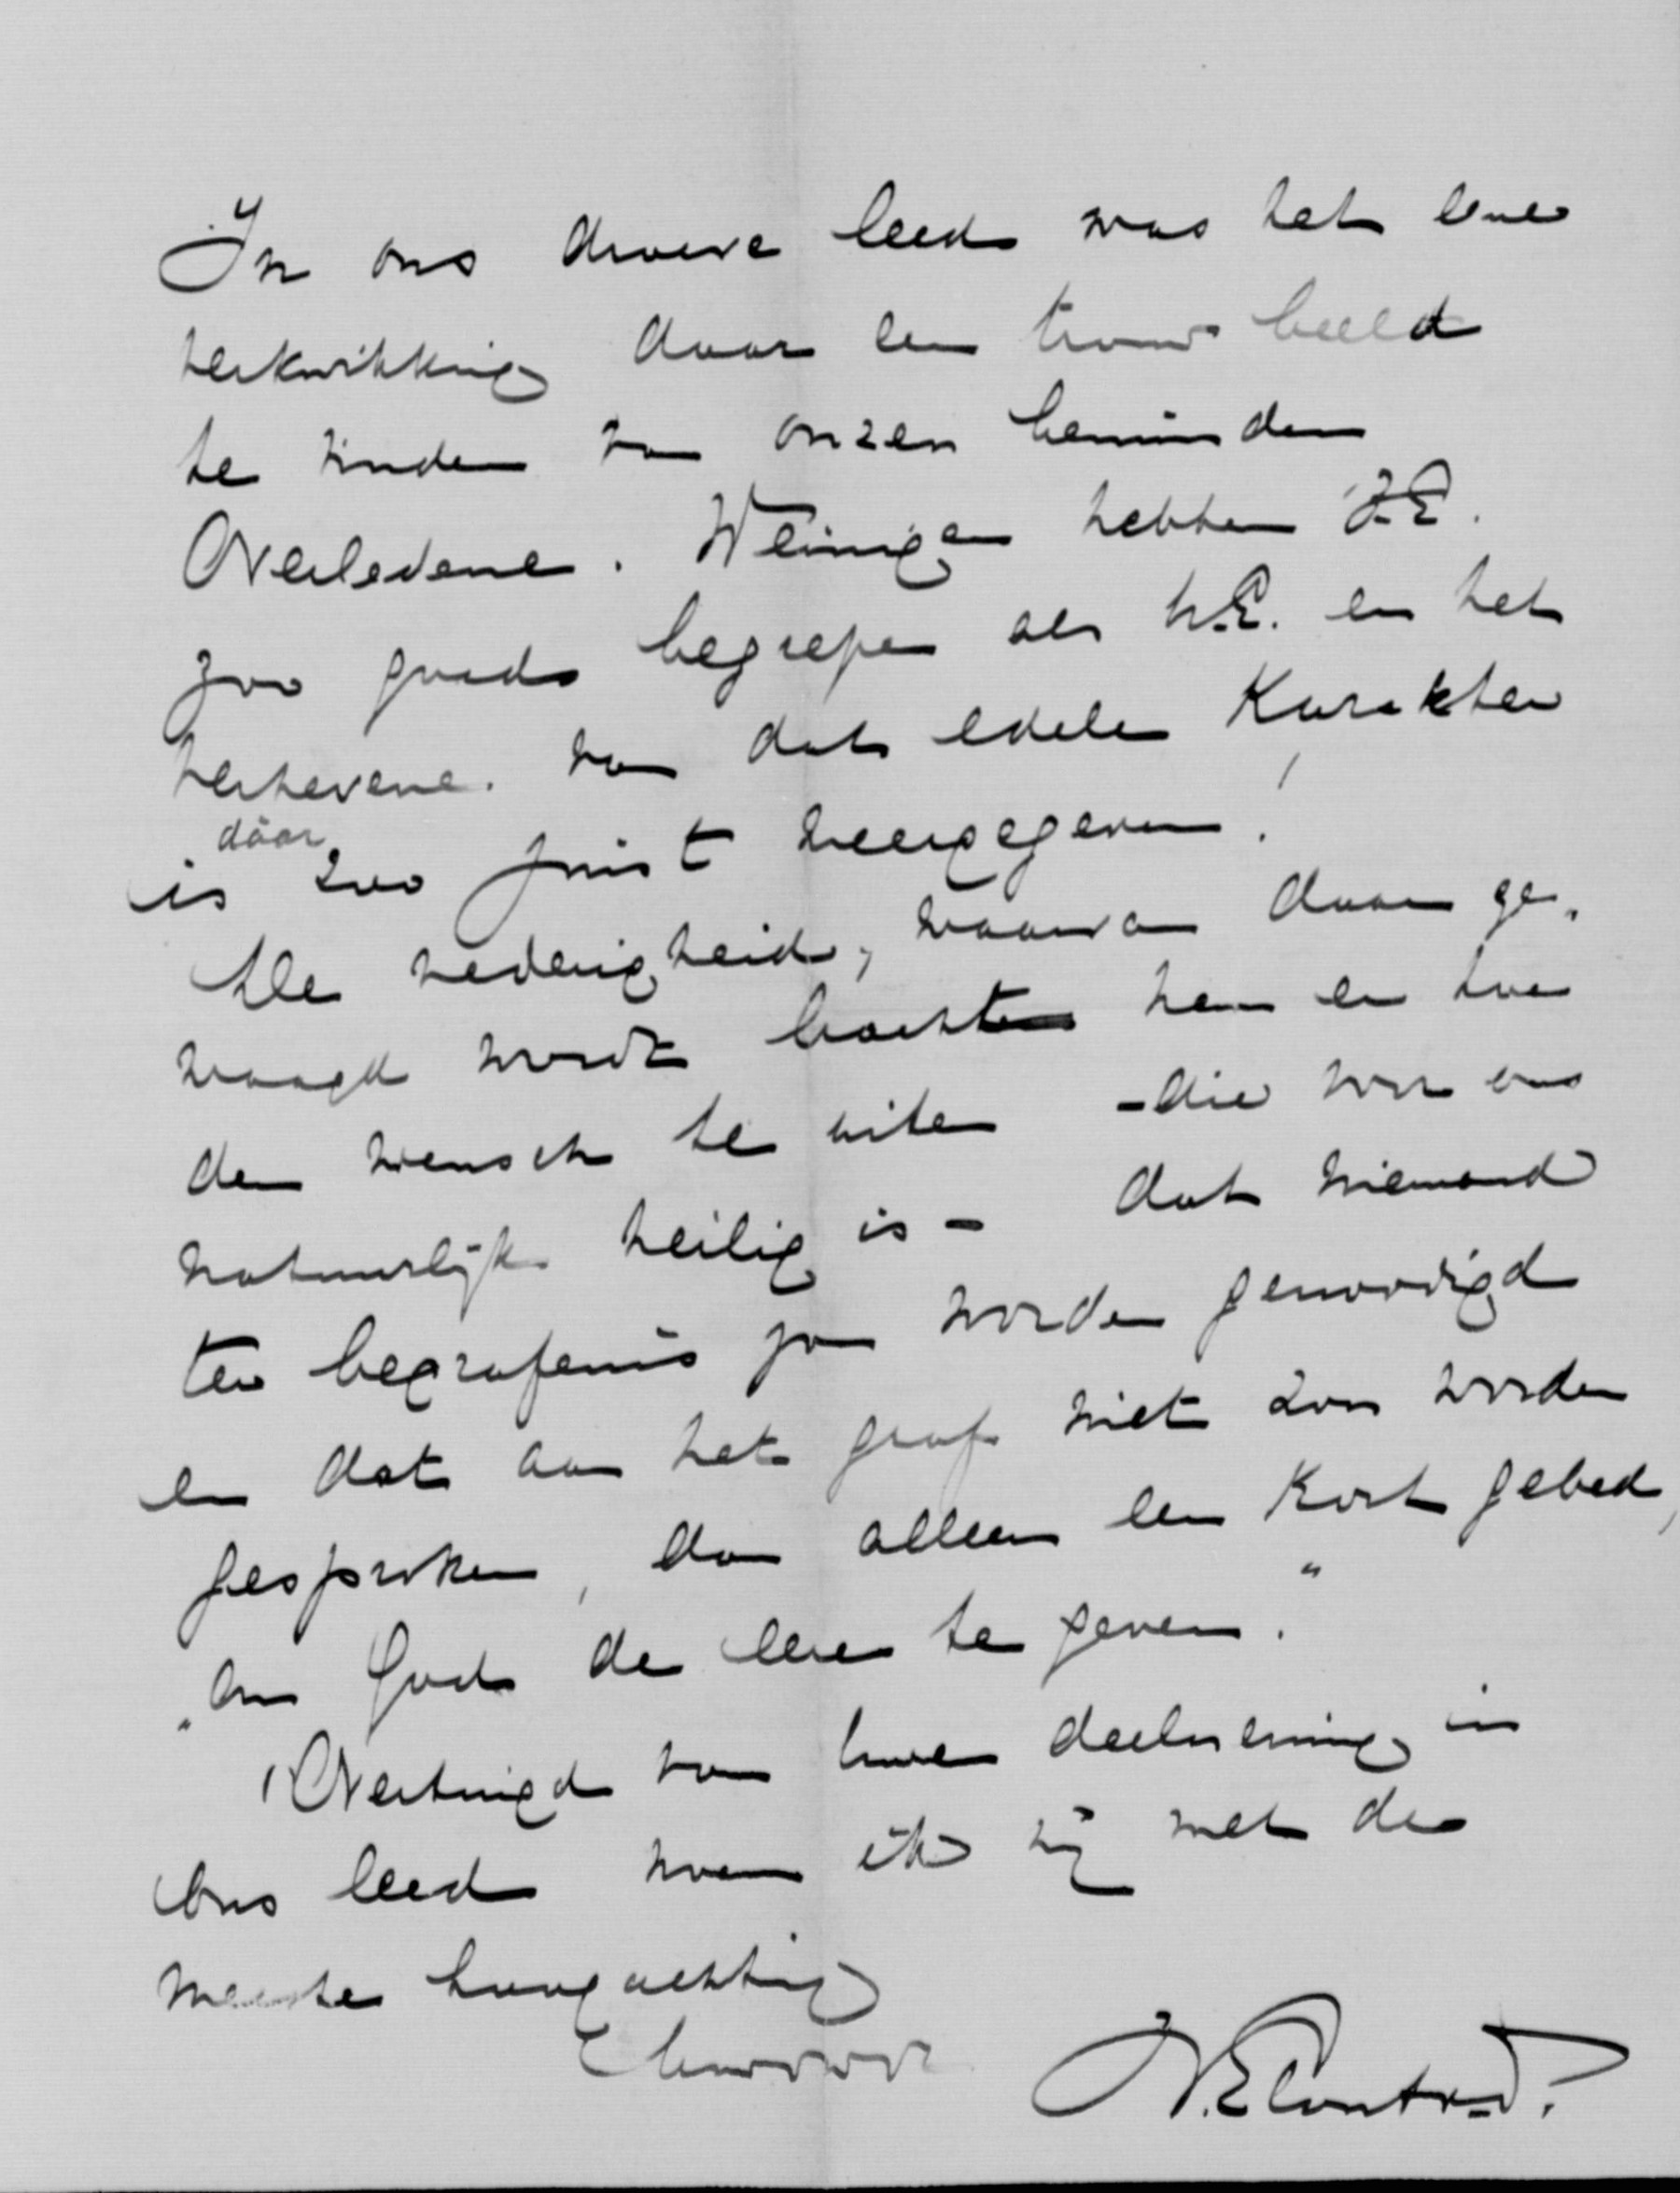 In ons droeve leed was het eene
verkwikking daar een trouw beeld
te vinden van onzen beminden
Overledene. Weinigen hebben Z.E.
zoo goed begrepen als U.E. en het
verhevene van dat edele Karakter
is dáár zoo juist weergegeven!
De nederigheid, waarvan daar ge-
waagd wordt bracht hem er toe
den wensch te uiten - die voor ons
natuurlijk heilig is - dat niemand
ter begrafenis zou worden genoodigd
en dat aan het graf niet zou worden
gesproken, dan alleen een kort gebed,
"om God de eere te geven."
Overtuigd van Uwe deelneming in
ons leed noem ik mij met de
meeste hoogachting